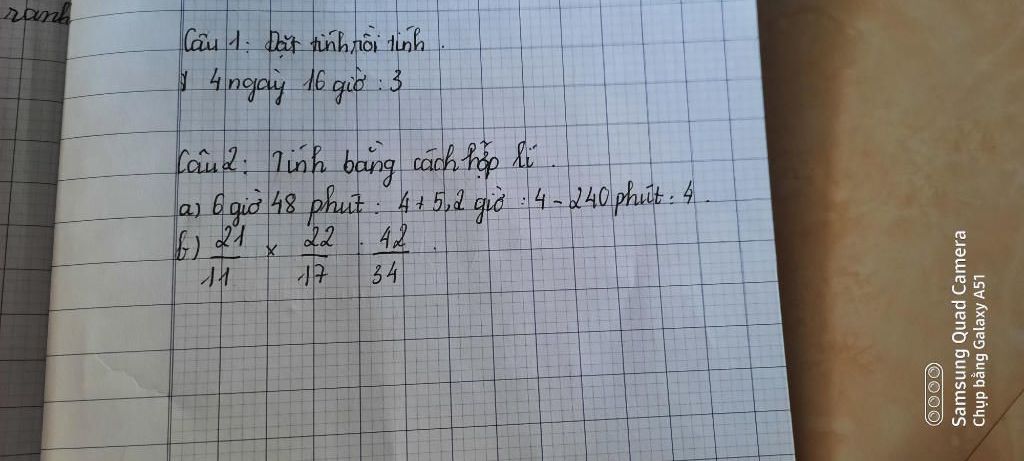 ranh
Câu 1: Đặt tính rồi tính.
4 ngày 16 giờ : 3
Câu 2: Tính bằng cách hợp lí.
a) 6 giờ 48 phút : 4 + 5,2 giờ : 4 - 240 phút : 4.
b) 21/11 × 22/17 : 42/34
Samsung Quad Camera
Chụp bằng Galaxy A51